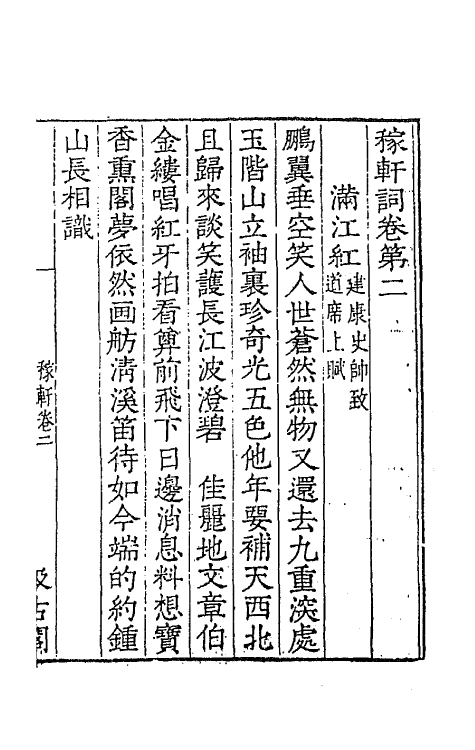 稼軒詞卷第二
滿江紅 建康史帥致道席上賦
鵬翼垂空笑人世蒼然無物又還去九重深處
玉階山立袖裏珍奇光五色他年要補天西北
且歸來談笑護長江波澄碧　佳麗地文章伯
金縷唱紅牙拍看尊前飛下日邊消息料想寶
香熏閣夢依然画舫清溪笛待如今端的約鍾
山長相識
稼軒卷二
汲古閣